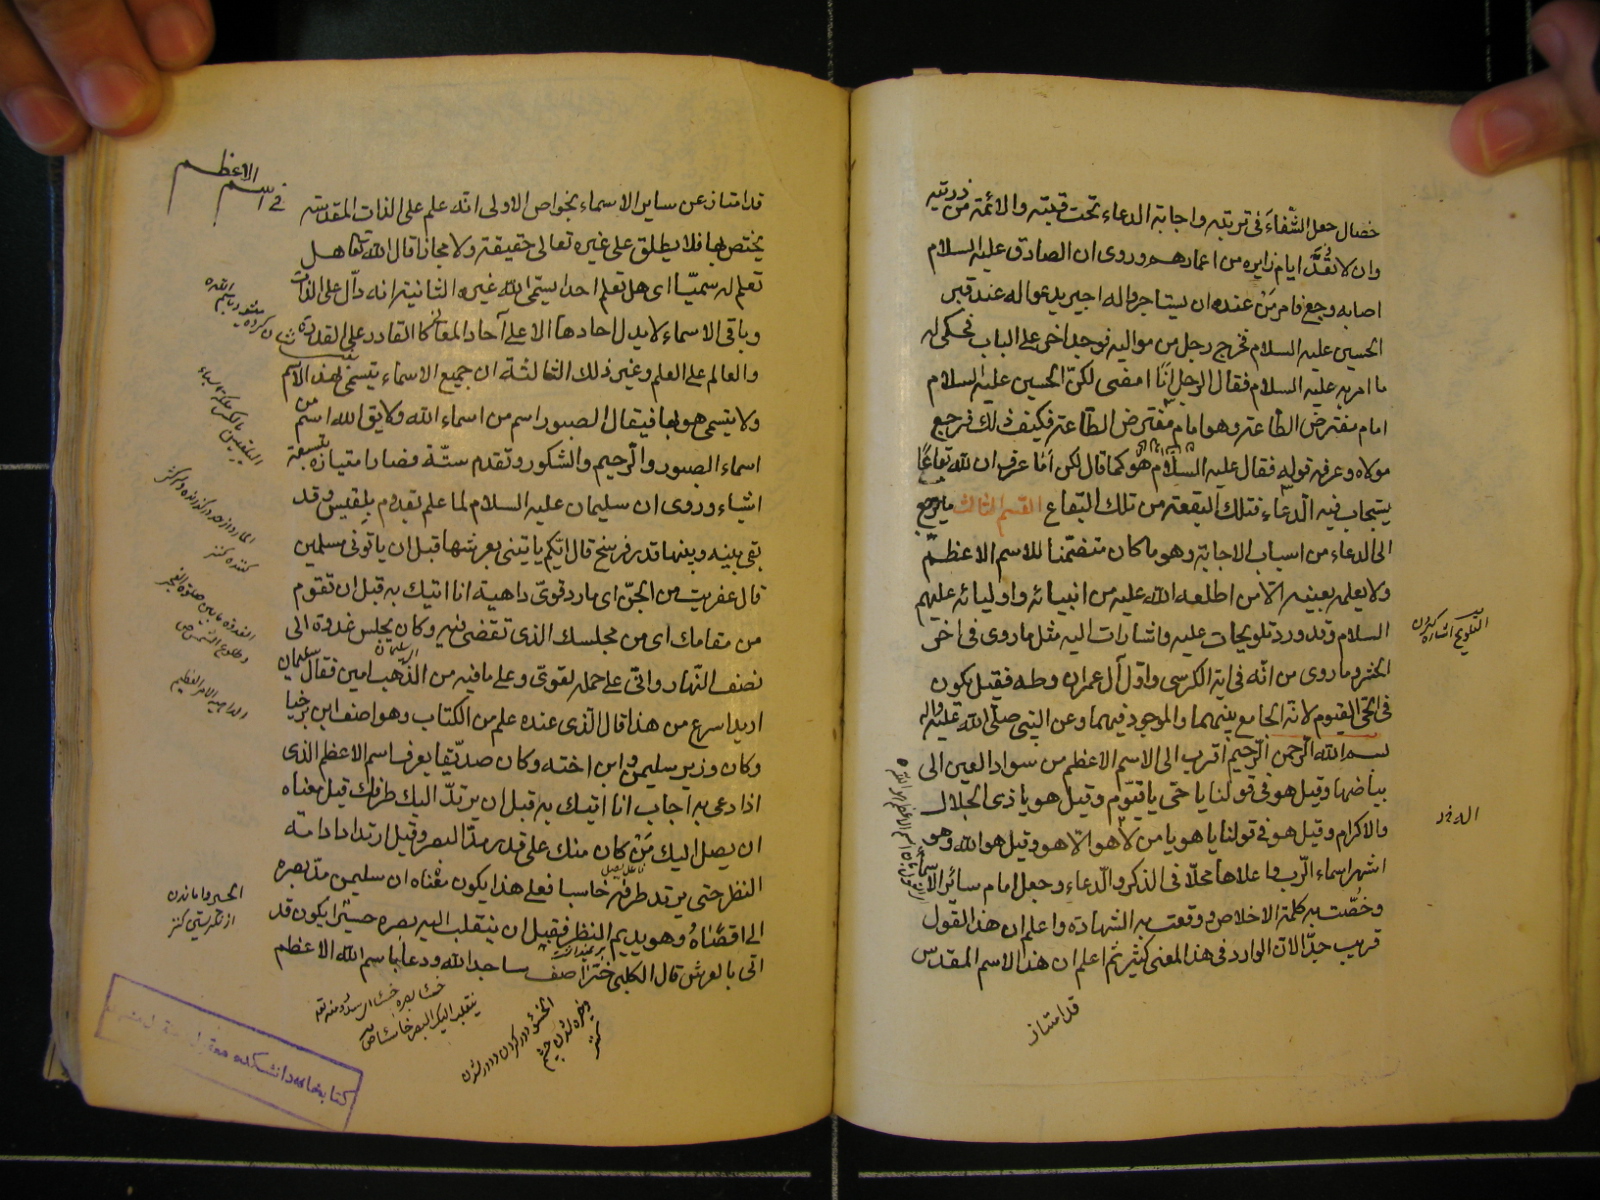 خصال جعل الشفاء في تربته واجابة الدعاء تحت قبته والائمة من ذريته
وان لا تعد ايام زايره من اعمارهم وروى ان الصادق عليه السلام
اصابه وجع فامر من عنده ان يستاجروا له اجير يدعوا له عند قبر
الحسين عليه السلام فخرج رجل من مواليه فوجد اخر على الباب فحكى له
ما امر به عليه السلام فقال الرجل انا امضى لكن الحسين عليه السلام
امام مفترض الطاعة وهو امام مفترض الطاعة فكيف ذلك فرجع
مولاه وعرفه قوله فقال عليه السلام هو كما قال لكن اما عرف ان لله تعالى بقاعا
يستجاب فيه الدعاء فتلك البقعة من تلك البقاع القسم الثالث ما يرجع
الى الدعاء من اسباب الاجابة وهو ما كان متضمنا للاسم الاعظم
ولا يعلم بعينه الا من اطلعه الله عليه من انبيائه واوليائه عليهم
السلام وقد ورد تلويحات عليه واشارات اليه مثل ما روى في اخر
الحشر وما روى من انه في اية الكرسي واول آل عمران وطه فقيل يكون
في الحي القيوم لانه الجامع بينهما والموجود فيهما وعن النبي صلى الله عليه واله
بسم الله الرحمن الرحيم اقرب الى الاسم الاعظم من سواد العين الى
بياضها وقيل هو في قولنا يا حي يا قيوم وقيل هو يا ذي الجلال
والاكرام وقيل هو في قولنا يا هو يا من لا هو الا هو وقيل هو الله وهو
اشهر اسماء الرب واعلاها محلا في الذكر والدعاء وجعل امام سائر الاسماء
وخصت به كلمة الاخلاص ووقعت به الشهادة واعلم ان هذا القول
قريب جدا لان الوارد في هذا المعنى كثير ثم اعلم ان هذا الاسم المقدس
قد امتاز
التلويح اشاره كردن
في اسم الاعظم
قد امتاز عن ساير الاسماء بخواص الاولى انه علم على الذات المقدسة
يختص بها فلا يطلق على غيره تعالى حقيقة ولا مجازا قال الله تعالى هل
تعلم له سميا اى هل تعلم احدا يسمى الله غيره الثانية انه دال على الذات
وباقي الاسماء لا يدل احادها الا على آحاد المعاني كالقادر على القدرة
والعالم على العلم وغير ذلك الثالثة ان جميع الاسماء يتسمى بهذا الاسم
ولا يتسمى هو بها فيقال الصبور اسم من اسماء الله ولا يق الله اسم من
اسماء الصبور والرحيم والشكور وتقدم ستة فصار امتيازه بتسعة
اشياء وروى ان سليمان عليه السلام لما علم بقدوم بلقيس وقد
بقى بينه وبينها قدر فرسخ قال ايكم ياتيني بعرشها قبل ان ياتوني مسلمين
قال عفريت من الجن اى مارد قوى داهية انا اتيك به قبل ان تقوم
من مقامك اى من مجلسك الذى تقضى فيه وكان يجلس غدوة الى
نصف النهار وانى على حمله لقوى وعلى ما فيه من الذهب امين فقال سليمان
اريد اسرع من هذا قال الذى عنده علم من الكتاب وهو اصف ابن برخيا
وكان وزير سليمن وابن اخته وكان صديقا يعرف اسم الاعظم الذى
اذا دعى به اجاب انا اتيك به قبل ان يرتد اليك طرفك قيل معناه
ان يصل اليك من كان منك على قدر مد البصر وقيل ارتداد ادامة
النظر حتى يرتد طرفه خاسبا فعلى هذا يكون معناه ان سليمن مد بصره
الى اقصاه وهو يديم النظر فقبل ان ينقلب اليه بصره حسيرا يكون قد
اتى بالعرش قال الكلبي خر اصف ساجدا لله ودعا باسم الله الاعظم
الداهية الامر العظيم
كتابخانه دانشكده